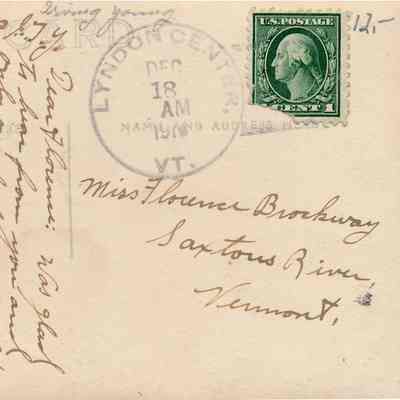 Irving Young
LYNDON CENTER.
DEC
18
AM
VT.
U.S. POSTAGE
CENT 1
12.-
NAME AND ADDRESS HERE
Miss Florence Brockway
Saxtons River,
Vermont,
Dear Florence: Was glad
to hear from you and